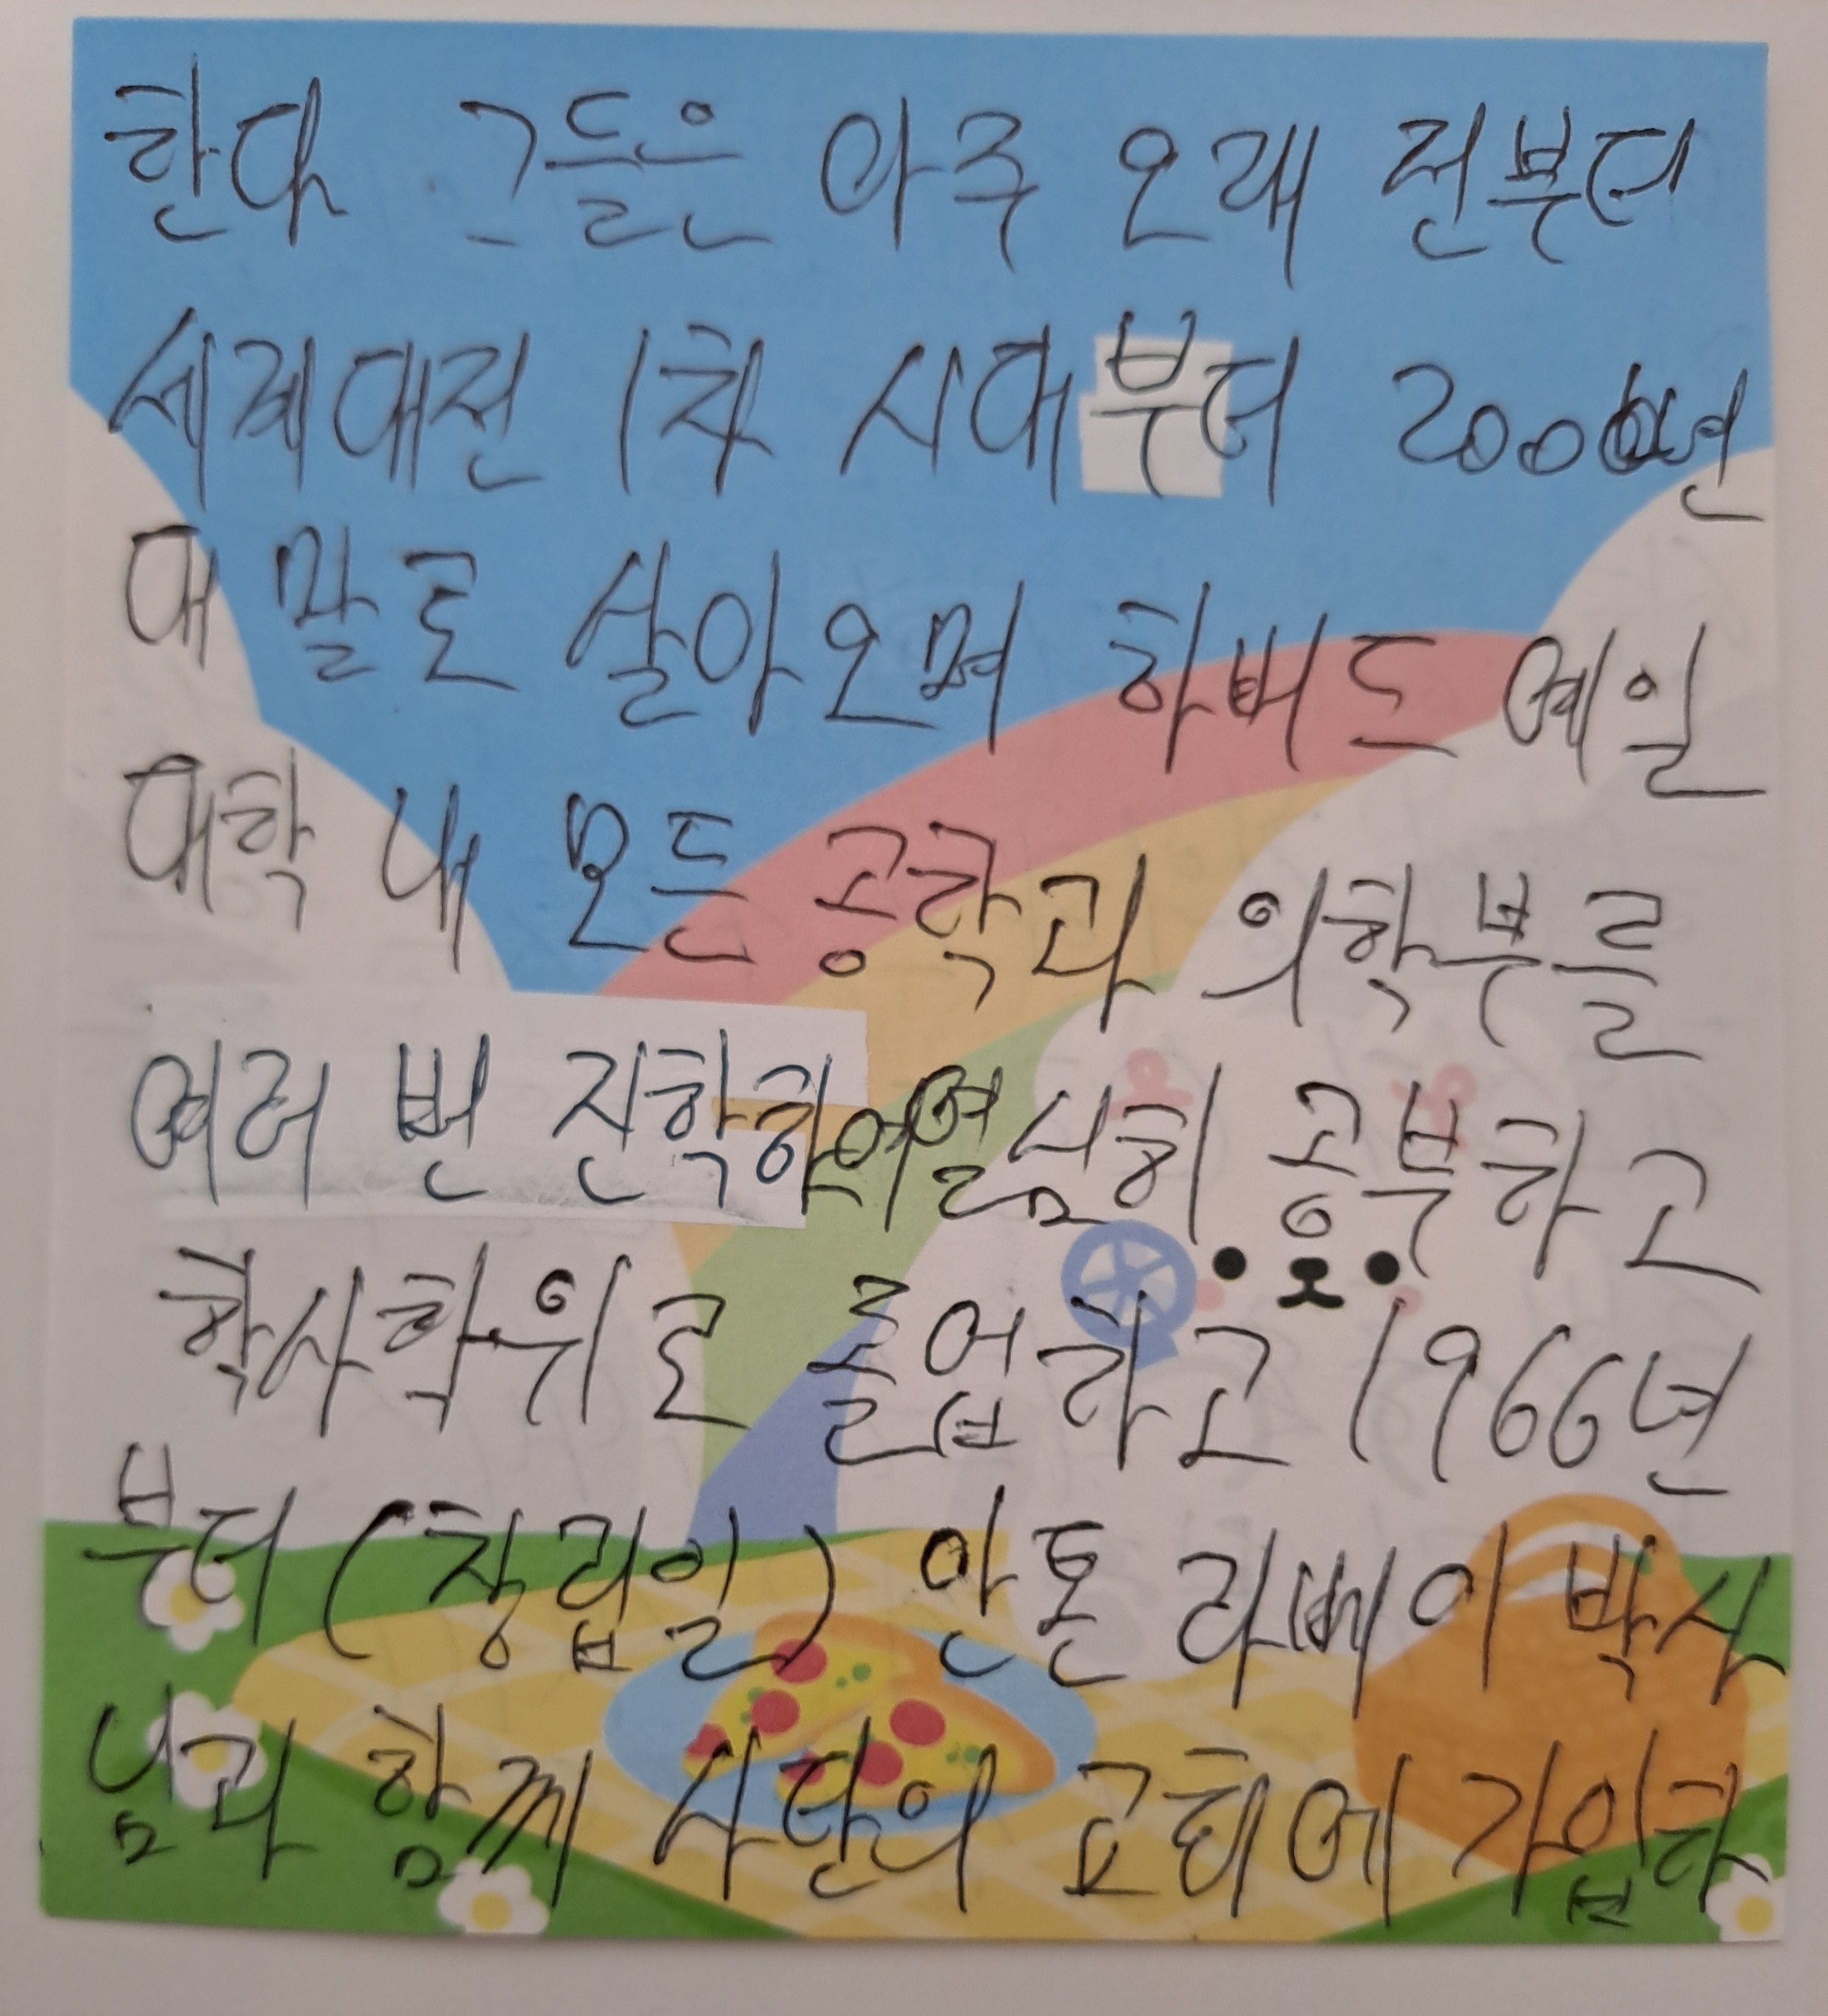 한다 그들은 아주 오래 전부터
세계대전 1차 시대부터 2000년
대 말로 살아오며 하버드 예일
대학 내 모든 공학과 의학부를
여러 번 진학하여 열심히 공부하고
학사학위로 졸업하고 1966년
부터 (창립일) 안톤 라베이 박사
님과 함께 사탄의 교회에 가입하